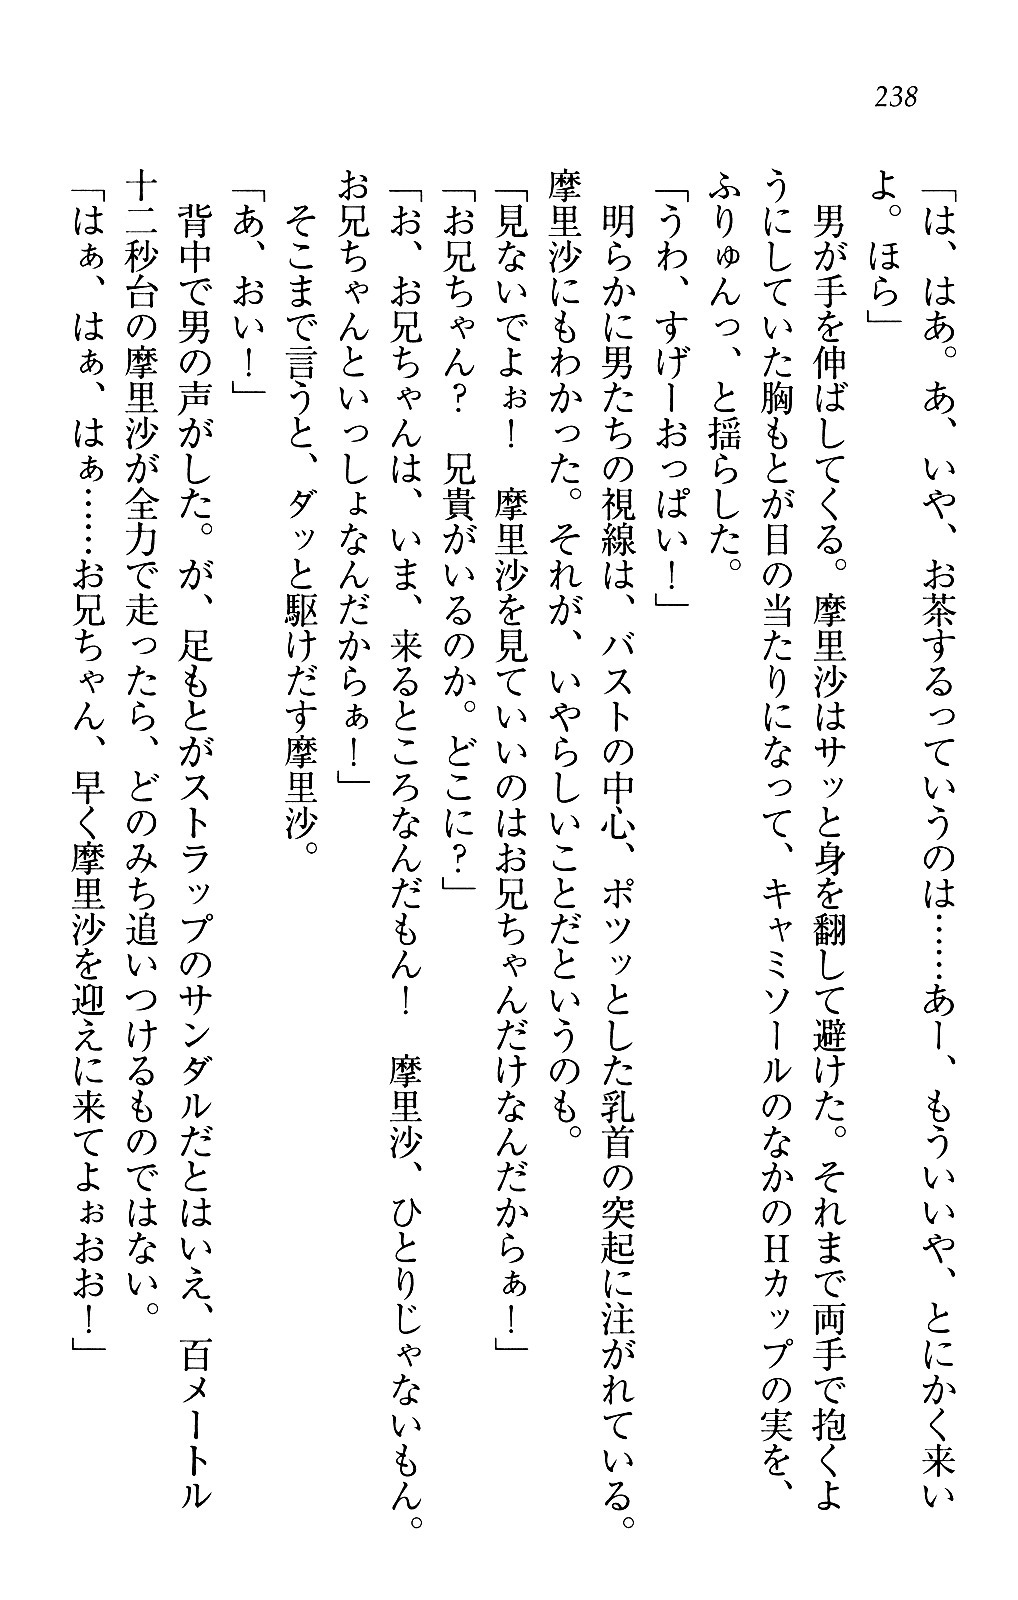 238
「は、はあ。あ、いや、お茶するっていうのは……あー、もういいや、とにかく来い
よ。ほら」
　男が手を伸ばしてくる。摩里沙はサッと身を翻して避けた。それまで両手で抱くよ
うにしていた胸もとが目の当たりになって、キャミソールのなかのHカップの実を、
ふりゅんっ、と揺らした。
「うわ、すげーおっぱい！」
　明らかに男たちの視線は、バストの中心、ポツッとした乳首の突起に注がれている。
摩里沙にもわかった。それが、いやらしいことだというのも。
「見ないでよぉ！　摩里沙を見ていいのはお兄ちゃんだけなんだからぁ！」
「お兄ちゃん？　兄貴がいるのか。どこに？」
「お、お兄ちゃんは、いま、来るところなんだもん！　摩里沙、ひとりじゃないもん。
お兄ちゃんといっしょなんだからぁ！」
　そこまで言うと、ダッと駆けだす摩里沙。
「あ、おい！」
　背中で男の声がした。が、足もとがストラップのサンダルだとはいえ、百メートル
十二秒台の摩里沙が全力で走ったら、どのみち追いつけるものではない。
「はぁ、はぁ、はぁ……お兄ちゃん、早く摩里沙を迎えに来てよぉおお！」